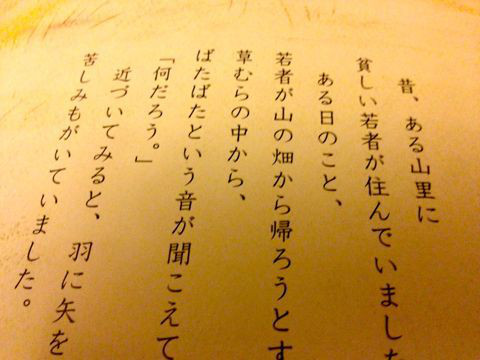 昔、ある山里に
貧しい若者が住んでいました
ある日のこと、
若者が山の畑から帰ろうとす
草むらの中から、
ばたばたという音が聞こえて
「何だろう。」
近づいてみると、羽に矢を
苦しみもがいていました。